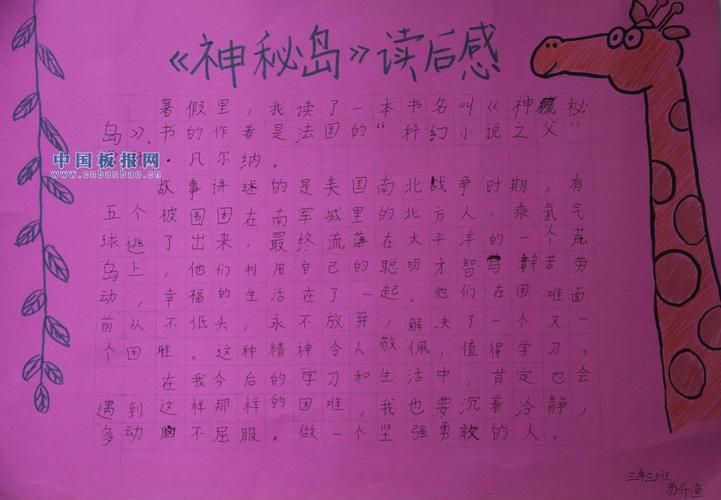 《神秘岛》读后感
暑假里，我读了一本书名叫《神秘
岛》。书的作者是法国的“科幻小说之父”
·凡尔纳。
中国板报网
www.cnbanbao.cn
故事讲述的是美国南北战争时期，有
五个被围困在南军城里的北方人，乘氢气
球逃了出来，最终流落在太平洋的一个荒
岛上，他们利用自己的聪明才智与辛苦劳
动，幸福的生活在了一起。他们在困难面
前从不低头，永不放弃，解决了一个又一
个困难。这种精神令人敬佩，值得学习。
在我今后的学习和生活中，肯定也会
遇到这样那样的困难，我也要沉着冷静，
多动脑不屈服。做一个坚强勇敢的人。
三年三班